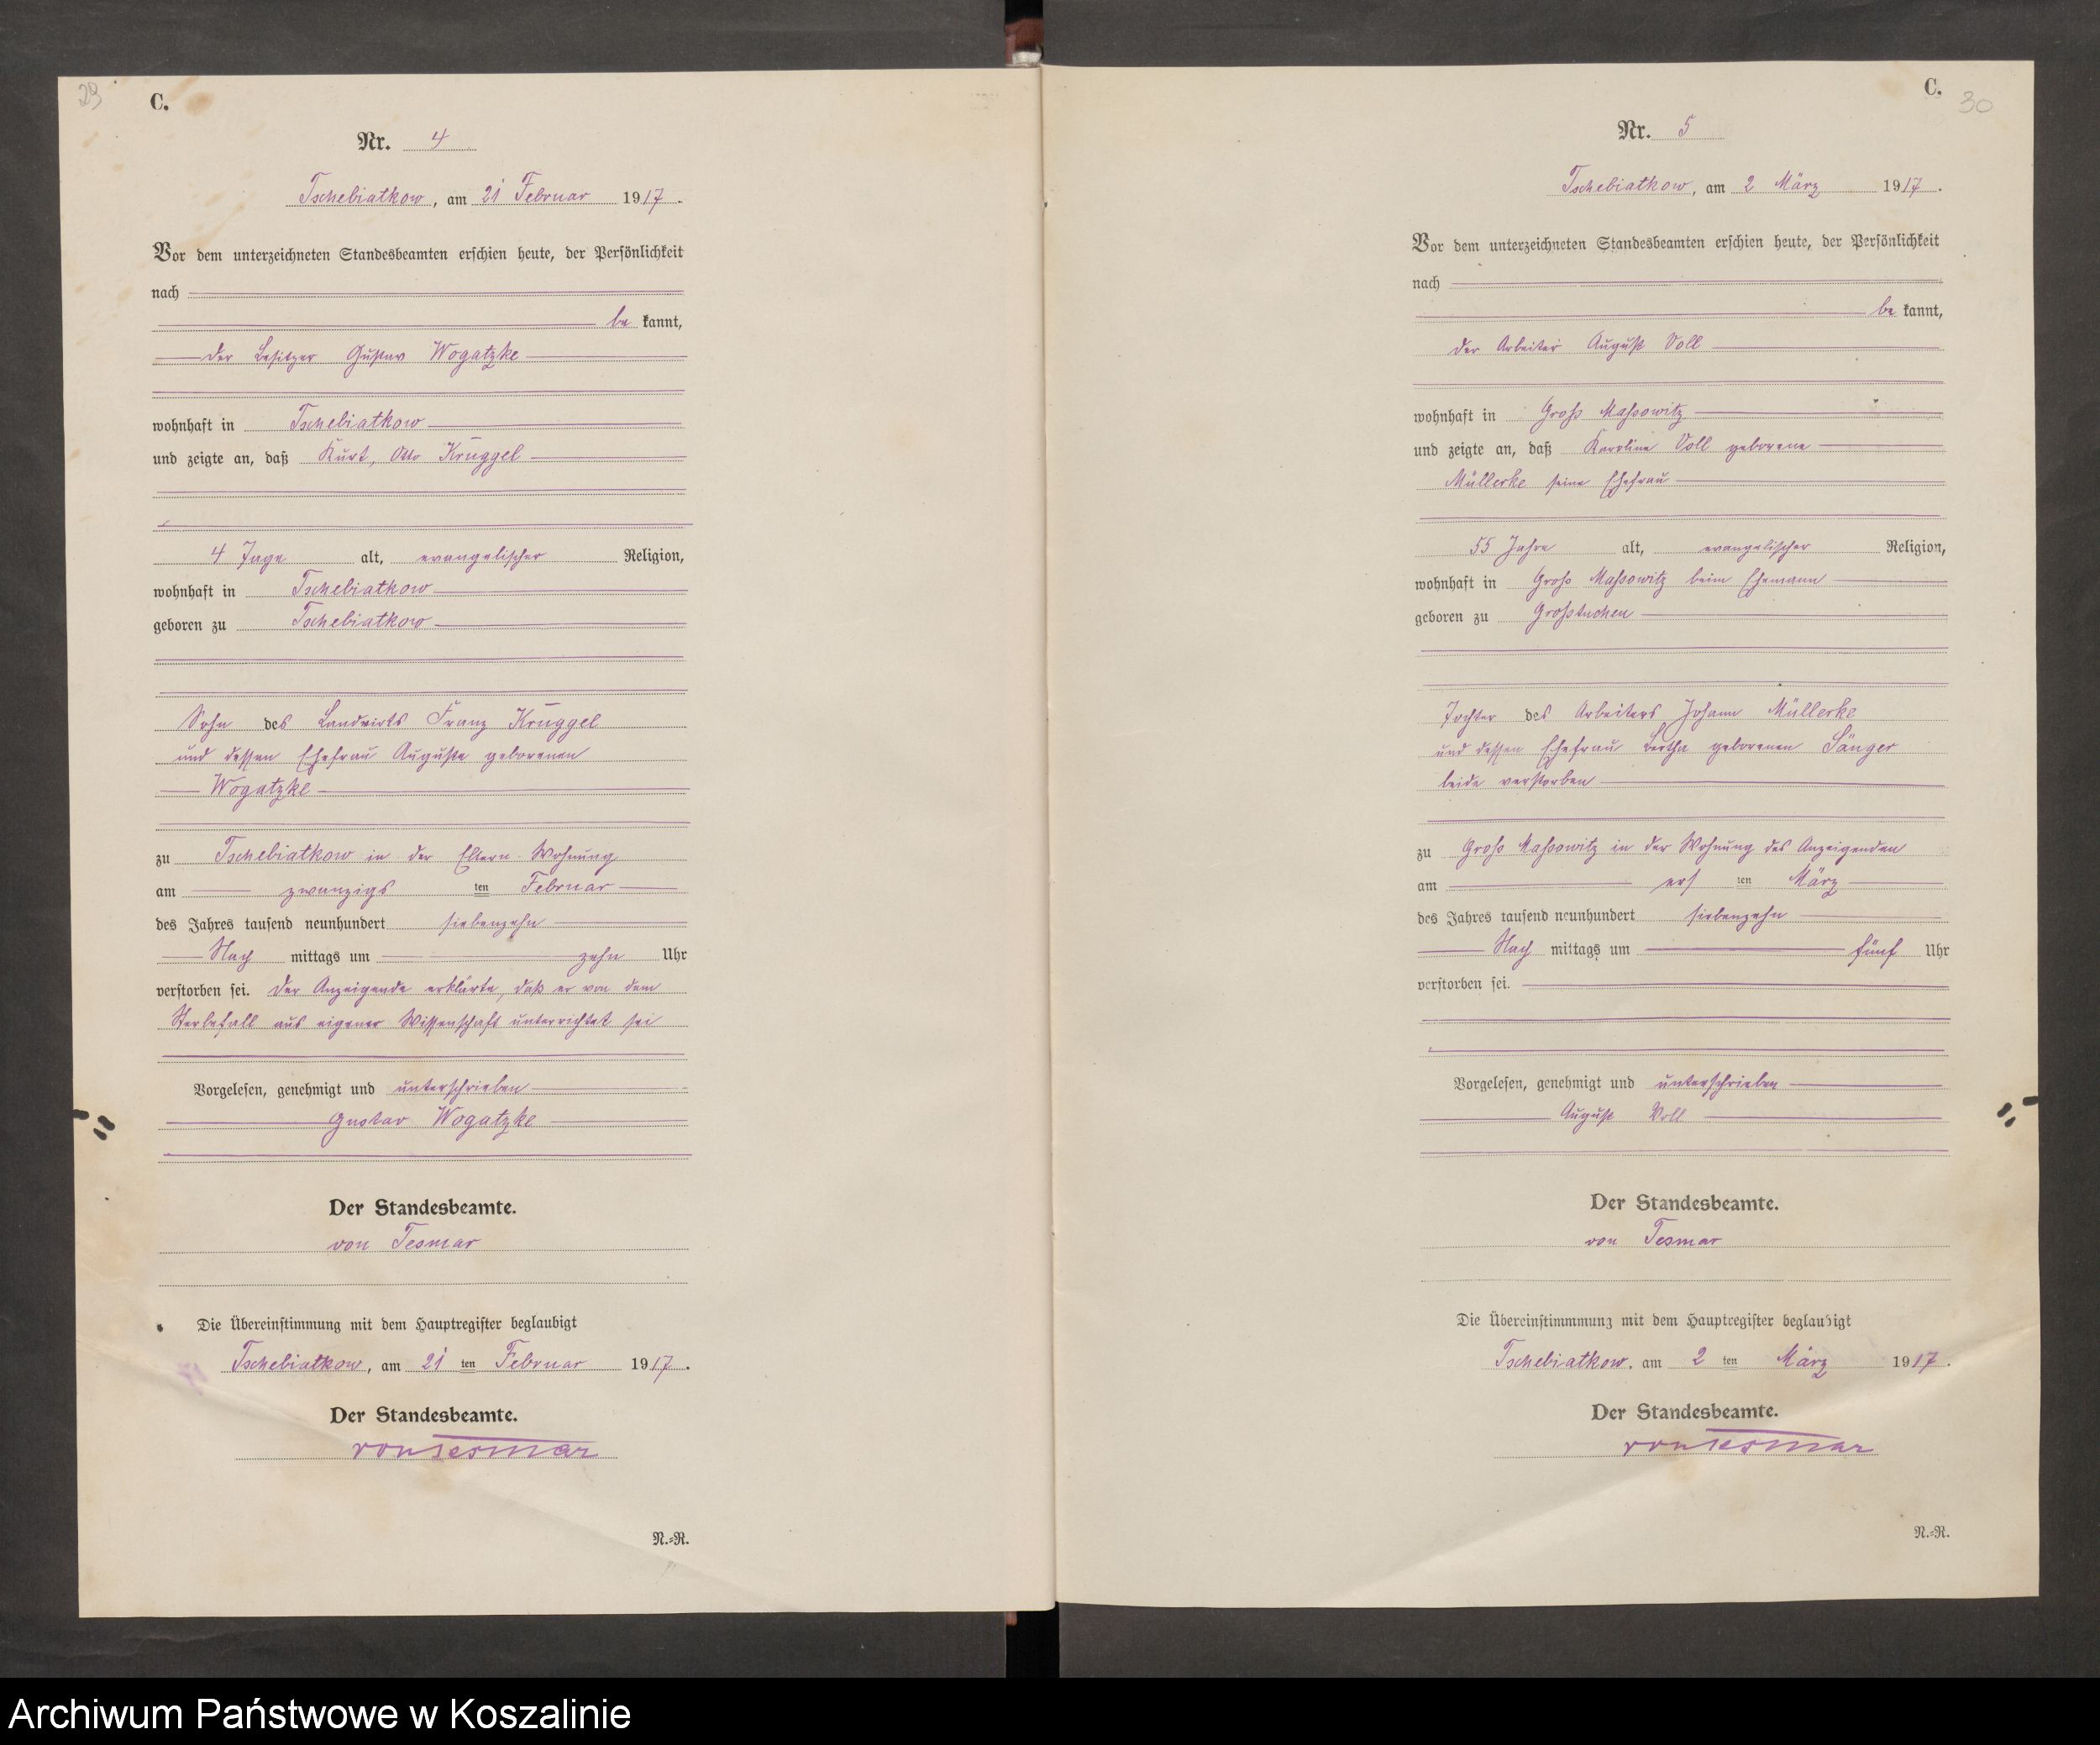 29
C.
Nr. 4
Tschebiatkow, am 21 Februar 1917.
Vor dem unterzeichneten Standesbeamten erschien heute, der Persönlichkeit
nach
be kannt,
der Besitzer Gustav Wogatzke
wohnhaft in Tschebiatkow
und zeigte an, daß Kurt, Otto Kruggel
4 Tage alt, evangelischer Religion,
wohnhaft in Tschebiatkow
geboren zu Tschebiatkow
Sohn des Landwirts Franz Kruggel
und dessen Ehefrau Auguste geborenen
Wogatzke
zu Tschebiatkow in der Eltern Wohnung
am zwanzigs ten Februar
des Jahres tausend neunhundert siebenzehn
Nach mittags um zehn Uhr
verstorben sei. Der Anzeigende erklärte, daß er von dem
Sterbefall aus eigener Wissenschaft unterrichtet sei
Vorgelesen, genehmigt und unterschrieben
Gustav Wogatzke
Der Standesbeamte.
von Tesmar
Die Übereinstimmung mit dem Hauptregister beglaubigt
Tschebiatkow, am 21 ten Februar 1917.
Der Standesbeamte.
von Tesmar
N.=R.
C.
30
Nr. 5
Tschebiatkow, am 2 März 1917.
Vor dem unterzeichneten Standesbeamten erschien heute, der Persönlichkeit
nach
be kannt,
der Arbeiter August Voll
wohnhaft in Groß Massowitz
und zeigte an, daß Karoline Voll geborene
Müllerke seine Ehefrau
55 Jahre alt, evangelischer Religion,
wohnhaft in Groß Massowitz beim Ehemann
geboren zu Großtuchen
Tochter des Arbeiters Johann Müllerke
und dessen Ehefrau Bertha geborenen Sänger
beide verstorben
zu Groß Massowitz in der Wohnung des Anzeigenden
am ers ten März
des Jahres tausend neunhundert siebenzehn
Nach mittags um fünf Uhr
verstorben sei.
Vorgelesen, genehmigt und unterschrieben
August Voll
Der Standesbeamte.
von Tesmar
Die Übereinstimmmung mit dem Hauptregister beglaubigt
Tschebiatkow, am 2 ten März 1917.
Der Standesbeamte.
von Tesmar
N.=R.
Archiwum Państwowe w Koszalinie